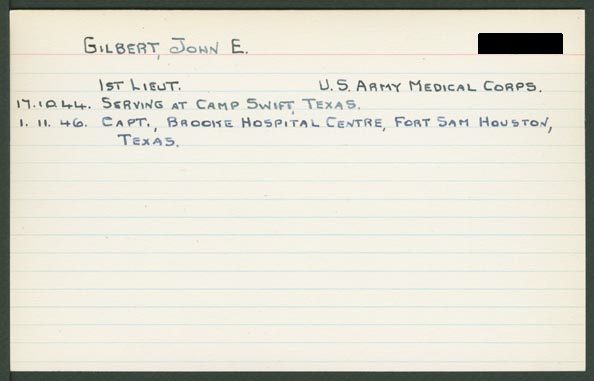 GILBERT, JOHN E.
1ST LIEUT. U.S. ARMY MEDICAL CORPS.
17.10.44. SERVING AT CAMP SWIFT, TEXAS.
1. 11. 46. CAPT., BROOKE HOSPITAL CENTRE, FORT SAM HOUSTON,
TEXAS.